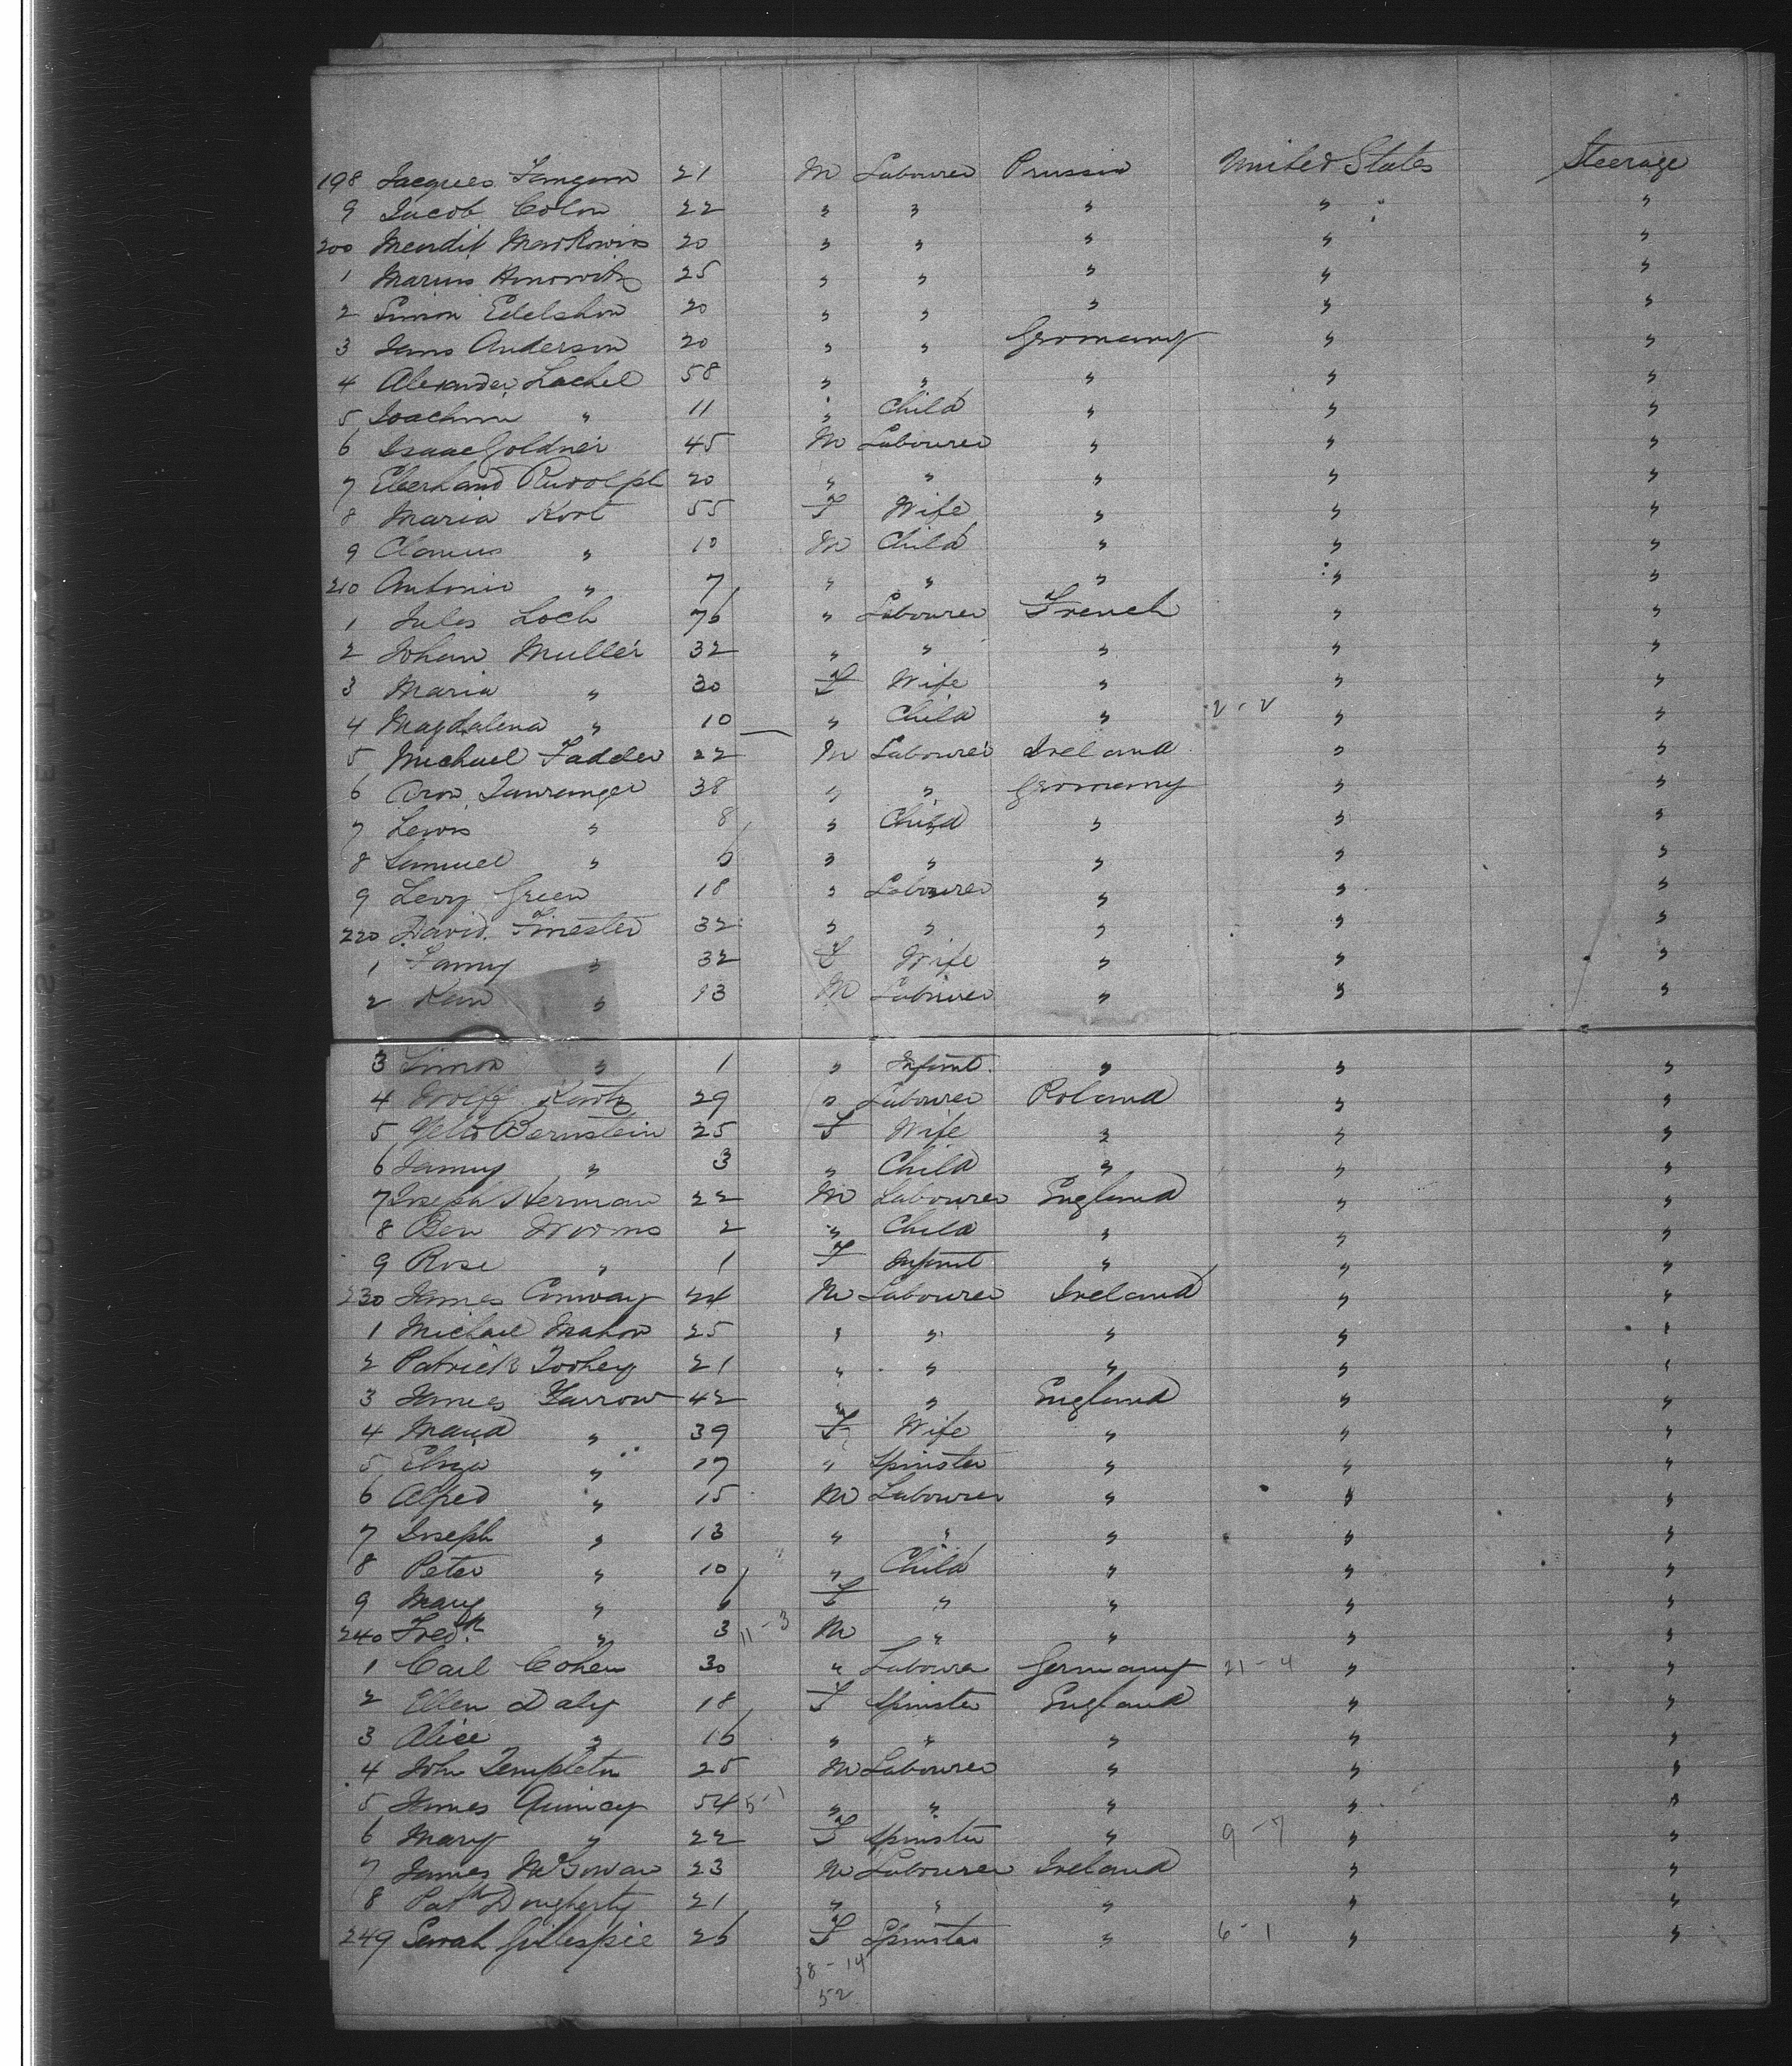 198 Jacques 21 M Labourer Prussia United States Steerage
9 Jacob Colon 22 " " " " "
200 Mendit Markowin 20 " " " " "
1 Marins 25 " " " " "
2 Simon Edelshon 20 " " " " "
3 Jans Anderson 20 " " Germany " "
4 Alexander Lachel 58 " " " " "
5 Joachim " 11 " Child " " "
6 Isaac Goldner 45 M Labourer " " "
7 Eberhand Rudolph 20 " " " " "
8 Maria Kort 55 F Wife " " "
9 " 10 M Child " " "
210 Antonio " 7 " " " " "
1 Jules Loch 76 " Labourer French " "
2 Johan Muller 32 " " " " "
3 Maria " 30 F Wife " " "
4 Magdalena " 10 " Child " 2-2 " "
5 Michael Fadder 22 M Labourer Ireland " "
6 Aron 38 " " Germany " "
7 Lewis " 8 " Child " " "
8 Samuel " 6 " " " " "
9 Levy Green 18 " Labourer " " "
220 David Finester 32 " " " " "
1 Fanny " 32 F Wife " " "
2 " 13 M Labourer " " "
3 Simon " 1 " Infant " " "
4 Wolff 29 " Labourer Poland " "
5 Bernstein 25 F Wife " " "
6 " 3 " Child " " "
7 Joseph Herman 22 M Labourer England " "
8 Ben Worms 2 " Child " " "
9 Rose " 1 F Infant " " "
230 James Conway 24 M Labourer Ireland " "
1 Michael Mahon 25 " " " " "
2 Patrick Toohey 21 " " " " "
3 James Farrow 42 " " England " "
4 Maud " 39 F Wife " " "
5 Eliza " 17 " Spinster " " "
6 Alfred " 15 M Labourer " " "
7 Joseph " 13 " " " " "
8 Peter " 10 " Child " " "
9 Mary " 6 F " " " "
240 Fredk " 3 11-3 M " " " "
1 Carl Cohen 30 " Labourer Germany 21-4 " "
2 Ellen Daly 18 F Spinster England " "
3 Alice " 16 " " " " "
4 John Templeton 25 M Labourer " " "
5 James Quincy 54 5-1 " " " " "
6 Mary " 22 F Spinster " 9-7 " "
7 James McGowan 23 M Labourer Ireland " "
8 Patk Dougherty 21 " " " " "
249 Sarah Gillespie 26 F Spinster " 6-1 " "
38-14
52